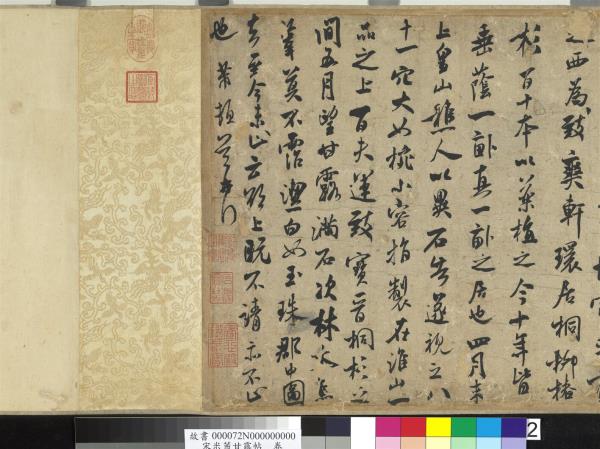 之西為致爽軒環居桐柳椿
杉百十本以藥植之今十年皆
垂蔭一畝真一畝之居也四月末
上皇山樵人以異石告遂視之八
十一穴大如椀小容指製在淮山一
品之上百夫運致寶晉桐杉之
間五月望甘露滿石次林木焦
葦莫不霑洁白如玉珠郡中圖
去至今未止云欲上既不請亦不止
也 芾頓首再拜
故書 000072N000000000
宋米芾甘露帖 卷
2